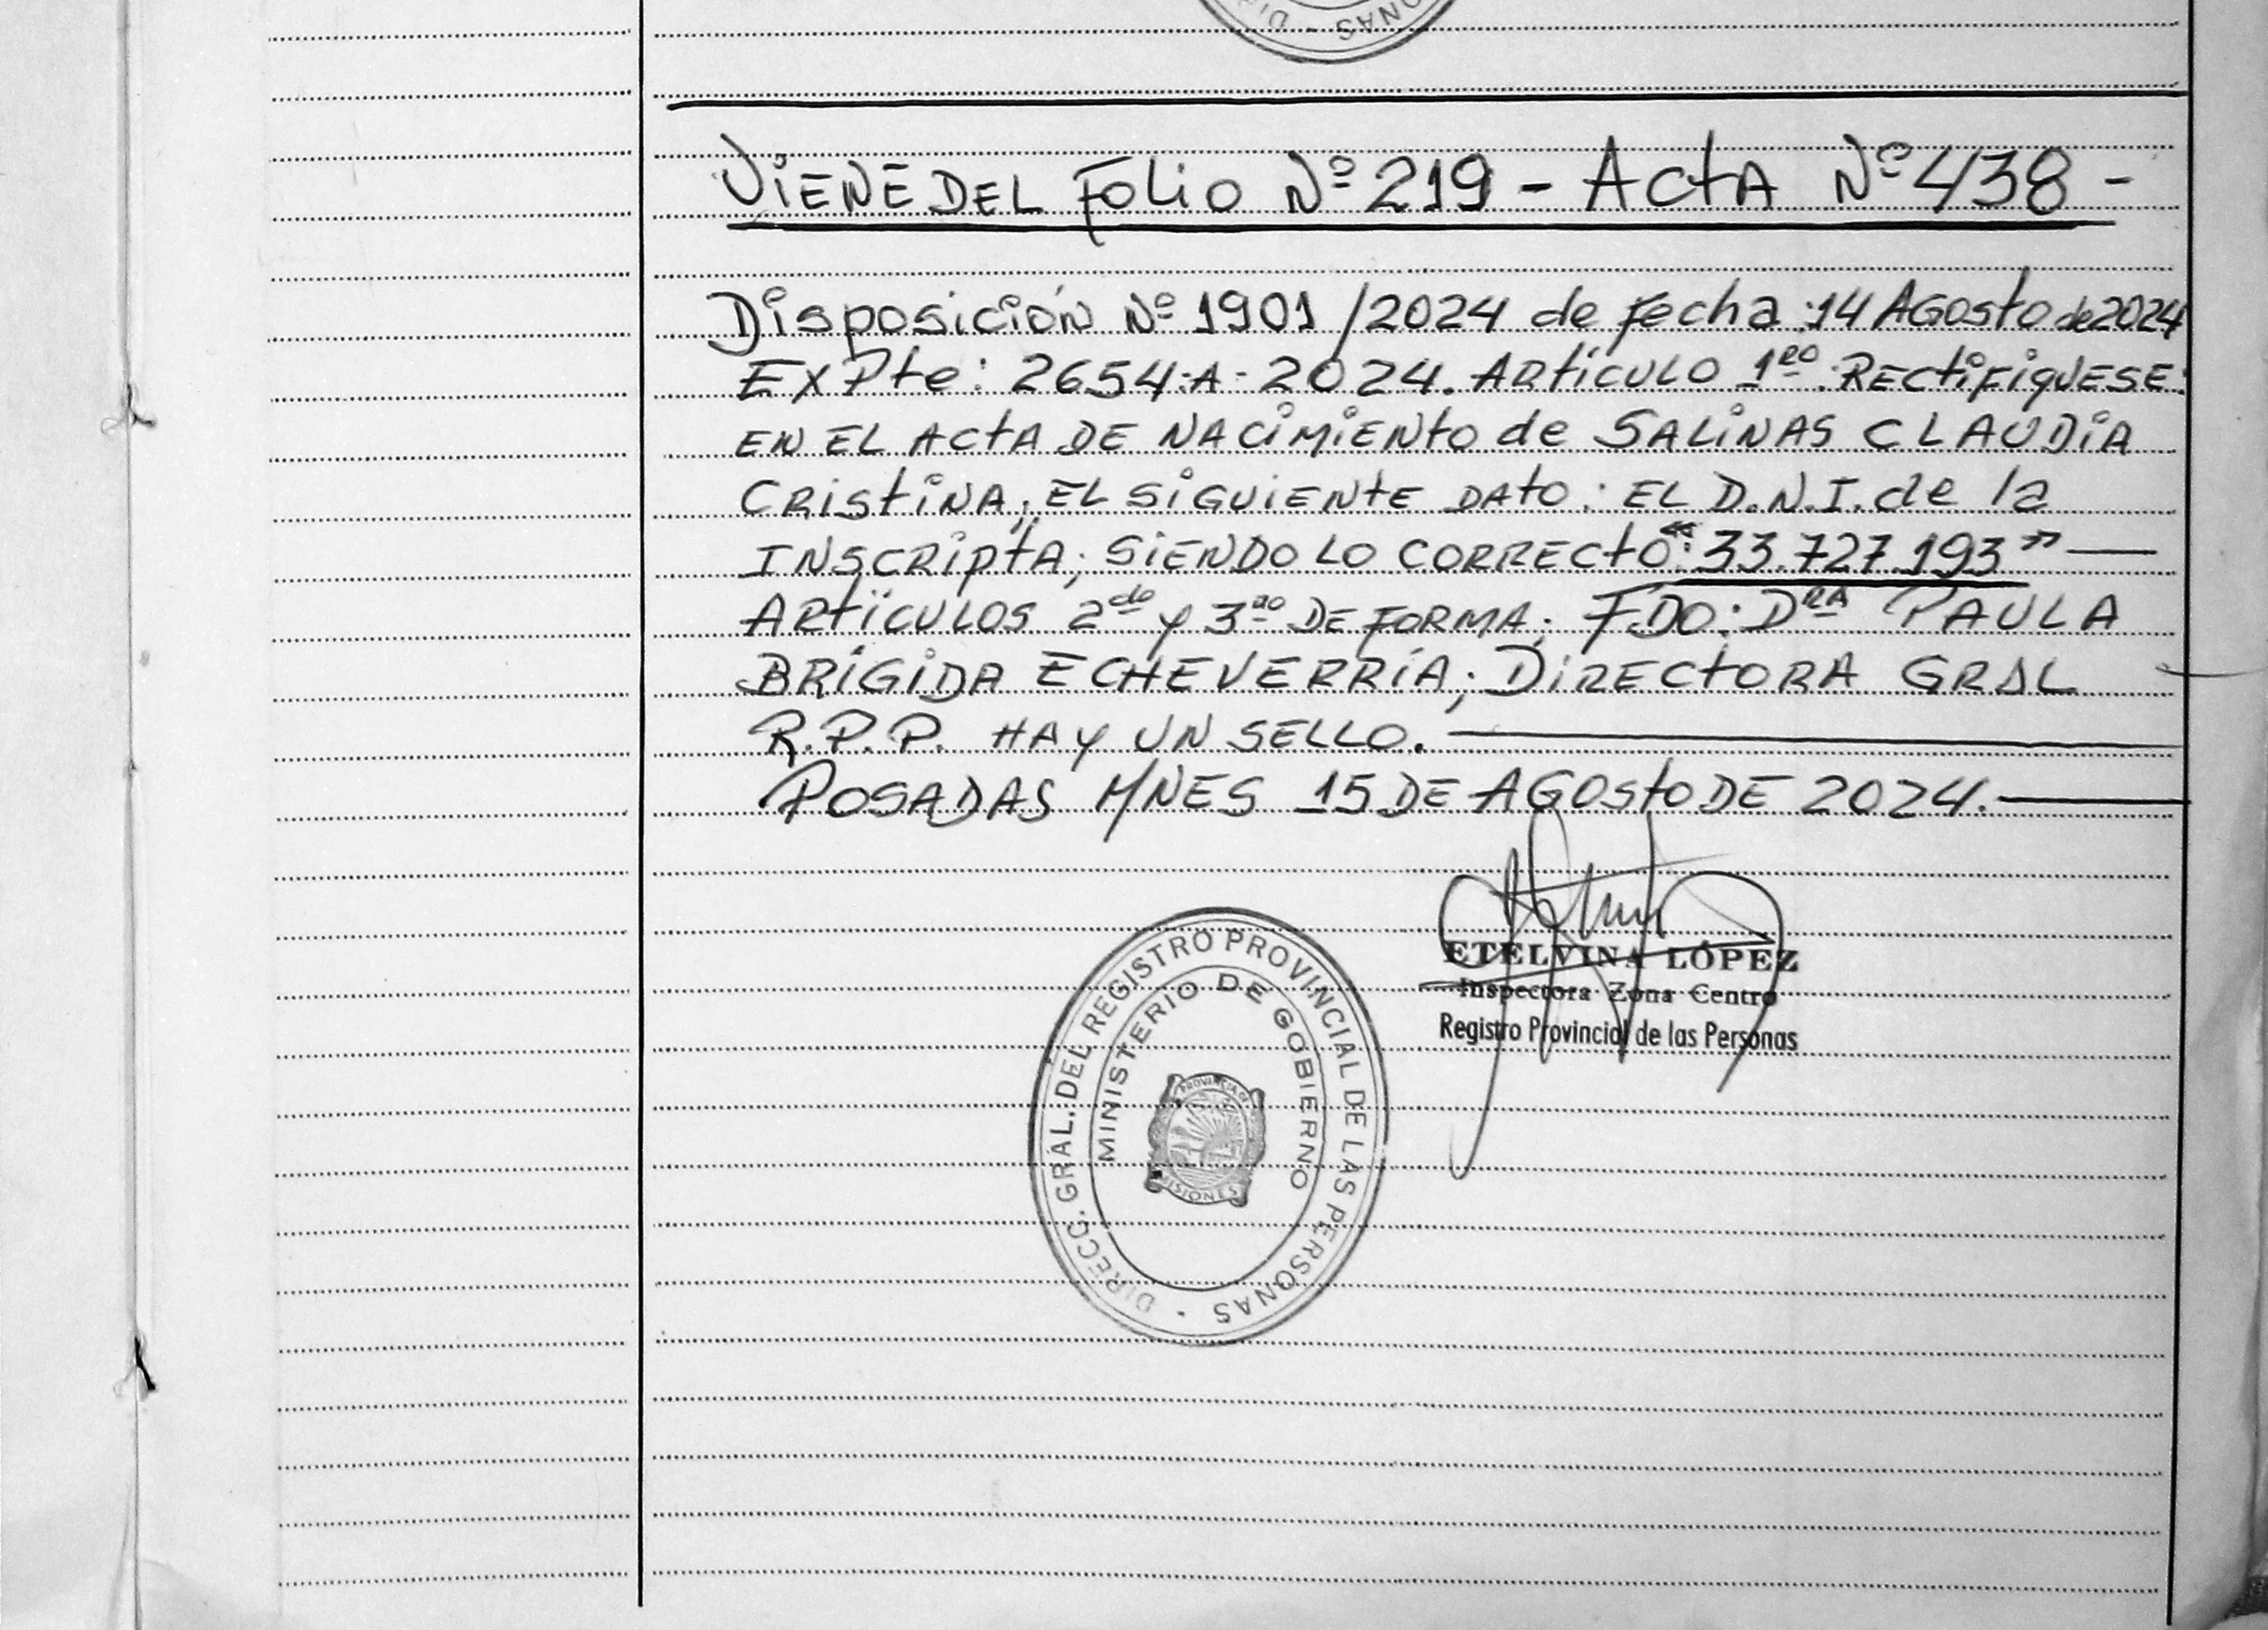 VIENE DEL FOLIO Nº 219 - ACTA Nº 438 -
Disposición Nº 1901 /2024 de fecha: 14 AGosto de 2024
EXPte: 2654-A-2024. ARtíCULO 1RO: RECtiFiQUESE:
EN EL ACtA DE NACiMiENto de SALiNAS CLAUDiA
CRistiNA; EL SiGUiENtE DAtO: EL D.N.I. de la
INSCRiptA; SiENDO LO CORRECtO: "33.727.193" —
ARtíCULOS 2do y 3ro DE FORMA. FDO: DRA PAULA
BRÍGIDA ECHEVERRÍA; DiRECtORA GRAL
R.P.P. HAY UN SELLO. —
POSADAS MNES 15 DE AGOSTO DE 2024. —
ETELVINA LÓPEZ
Inspectora Zona Centro
Registro Provincial de las Personas
DIRECC. GRAL. DEL REGISTRO PROVINCIAL DE LAS PERSONAS
MINISTERIO DE GOBIERNO
PROVINCIA DE
MISIONES